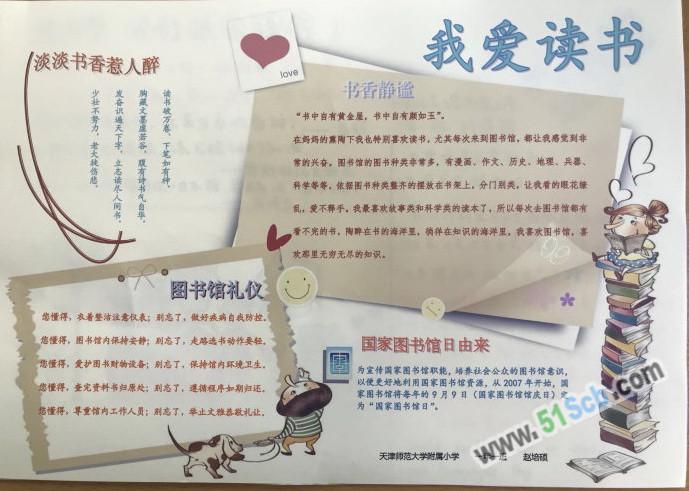 我爱读书
love
淡淡书香惹人醉
读书破万卷，下笔如有神。
胸藏文墨虚若谷，腹有诗书气自华。
发奋识遍天下字，立志读尽人间书。
少壮不努力，老大徒伤悲。
书香静谧
“书中自有黄金屋，书中自有颜如玉”。
在妈妈的熏陶下我也特别喜欢读书，尤其每次来到图书馆，都让我感觉到非
常的兴奋。图书馆的图书种类非常多，有漫画、作文、历史、地理、兵器、
科学等等。依据图书种类整齐的摆放在书架上，分门别类，让我看的眼花缭
乱，爱不释手。我最喜欢故事类和科学类的读本了，所以每次去图书馆都有
看不完的书，陶醉在书的海洋里，徜徉在知识的海洋里，我喜欢图书馆，喜
欢那里无穷无尽的知识。
图书馆礼仪
您懂得，衣着整洁注意仪表；别忘了，做好疾病自我防控。
您懂得，图书馆内保持安静；别忘了，走路选书动作要轻。
您懂得，爱护图书财物设备；别忘了，保持馆内环境卫生。
您懂得，查完资料书归原处；别忘了，遵循程序如期归还。
您懂得，尊重馆内工作人员；别忘了，举止文雅恭敬礼让。
国家图书馆日由来
为宣传国家图书馆职能，培养社会公众的图书馆意识，
以便更好地利用国家图书馆资源，从 2007 年开始，国
家图书馆将每年的 9 月 9 日（国家图书馆馆庆日）定
为“国家图书馆日”。
天津师范大学附属小学 赵培硕
www.51Scb.com